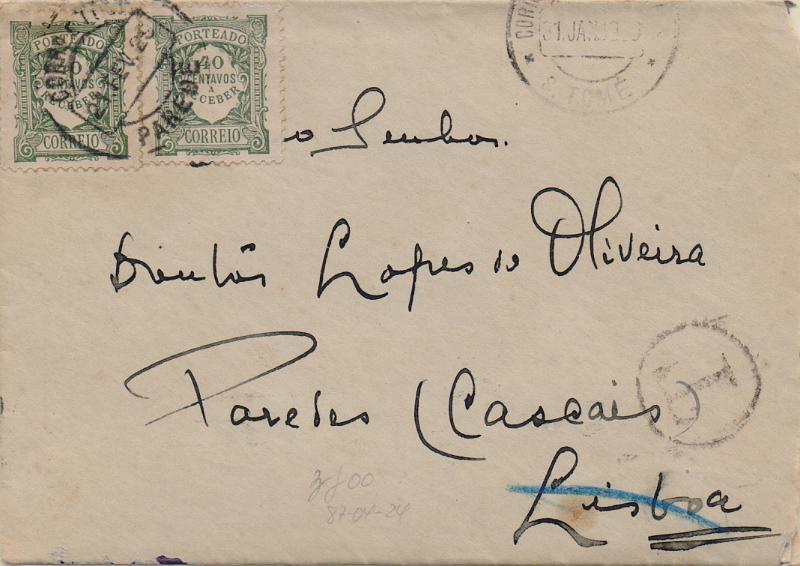 PORTEADO
40
CENTAVOS
A
RECEBER
CORREIO
PORTEADO
40
CENTAVOS
A
RECEBER
CORREIO
PAREDE
31.JAN.19
S. TOMÉ
T
o Senhor.
Lopes de Oliveira
Paredes (Cascais
Lisboa